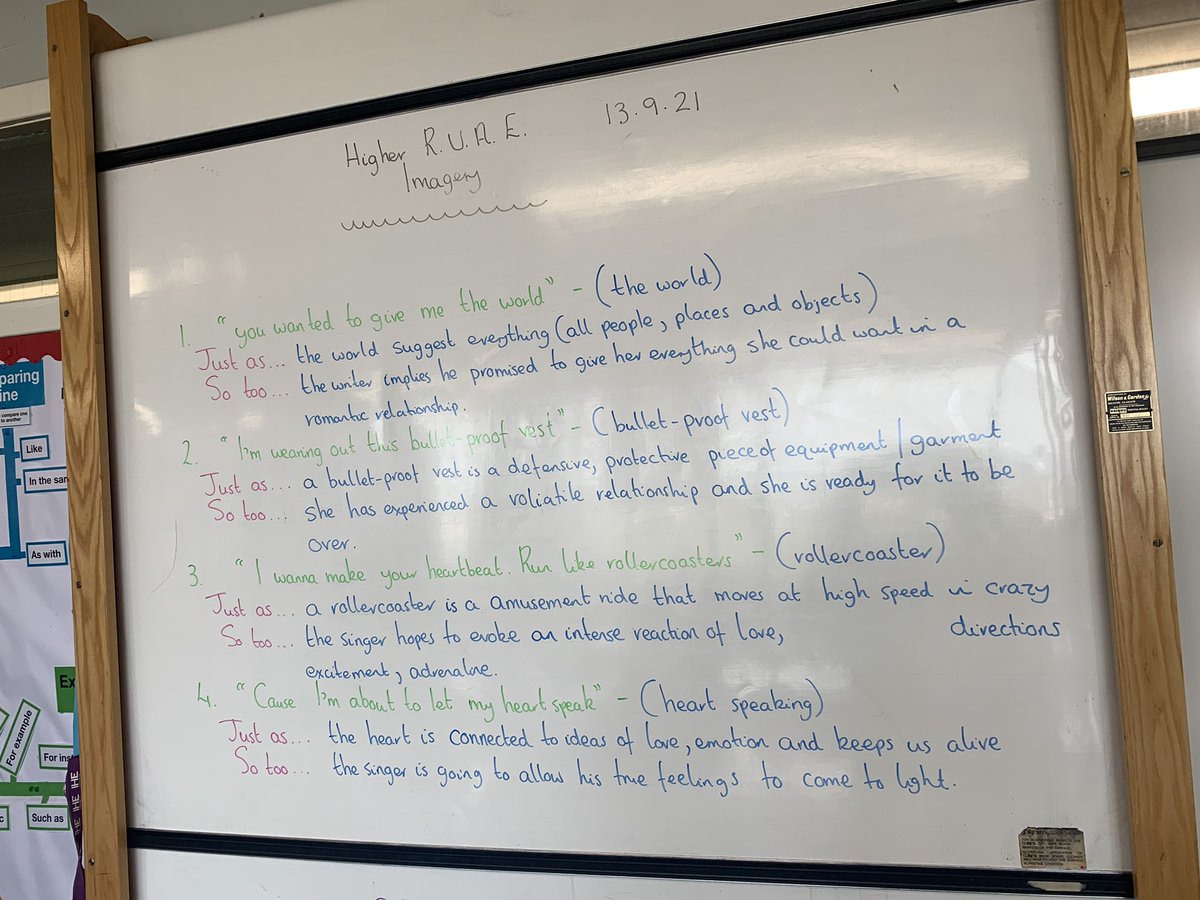 Higher R.U.A.E. 13.9.21
Imagery
1. "you wanted to give me the world" - (the world)
Just as... the world suggest everything (all people, places and objects)
So too... the writer implies he promised to give her everything she could want in a
romantic relationship.
2. "I'm wearing out this bullet-proof vest" - (bullet-proof vest)
Just as... a bullet-proof vest is a defensive, protective piece of equipment / garment
So too... she has experienced a voliatile relationship and she is ready for it to be
over.
3. "I wanna make your heartbeat. Run like rollercoasters" - (rollercoaster)
Just as... a rollercoaster is a amusement ride that moves at high speed in crazy
directions
So too... the singer hopes to evoke an intense reaction of love,
excitement, adrenaline.
4. "Cause I'm about to let my heart speak" - (heart speaking)
Just as... the heart is connected to ideas of love, emotion and keeps us alive
So too... the singer is going to allow his true feelings to come to light.
paring
ine
compare one
to another
Like
In the sa
As with
Ex
For example
For inst
Such as
Wilson & Garden